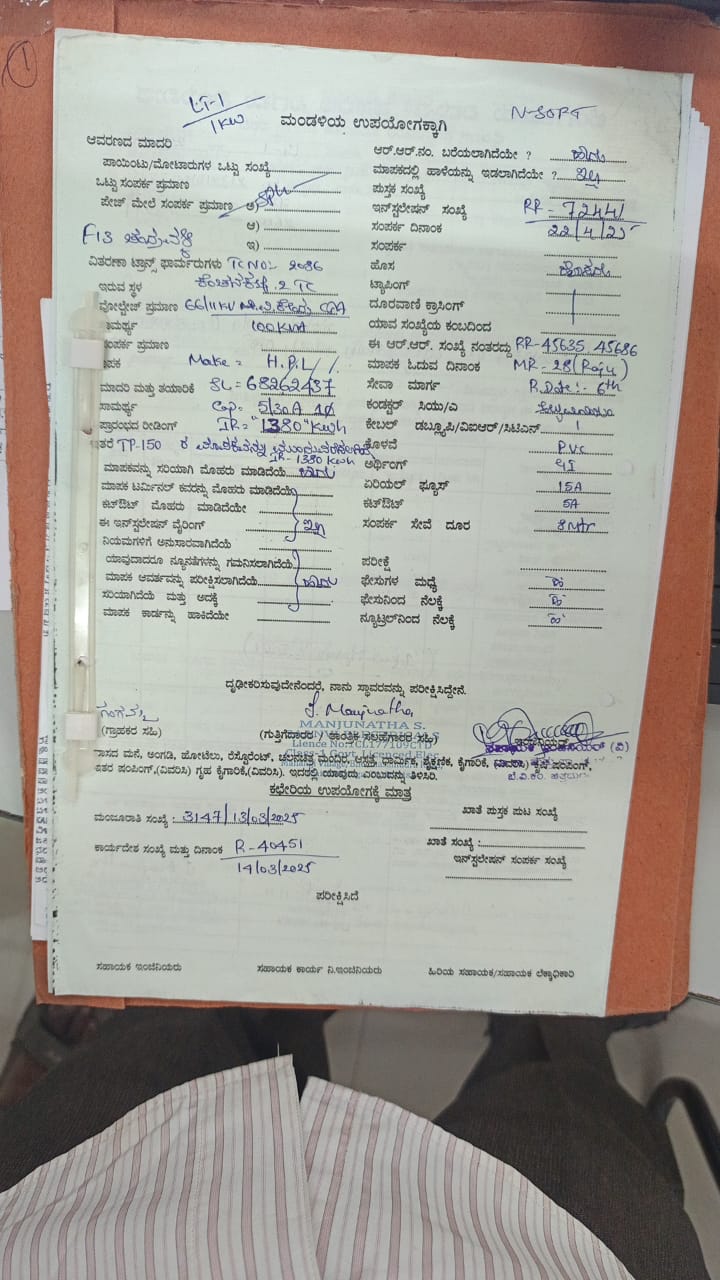 1
LT-1
1KW
ಮಂಡಳಿಯ ಉಪಯೋಗಕ್ಕಾಗಿ
ಆವರಣದ ಮಾದರಿ
ಪಾಯಿಂಟು/ಮೋಟಾರುಗಳ ಒಟ್ಟು ಸಂಖ್ಯೆ
ಒಟ್ಟು ಸಂಪರ್ಕ ಪ್ರಮಾಣ
ಪೇಜ್ ಮೇಲೆ ಸಂಪರ್ಕ ಪ್ರಮಾಣ ಅ)
ಆ)
F13 ಇ)
ವಿತರಣಾ ಟ್ರಾನ್ಸ್ ಫಾರ್ಮರುಗಳು TC NO:- 2086
ಇರುವ ಸ್ಥಳ 2 TC
ವೋಲ್ಟೇಜ್ ಪ್ರಮಾಣ 66/11KV
ಸಾಮರ್ಥ್ಯ 100KVA
ಸಂಪರ್ಕ ಪ್ರಮಾಣ
ಮಾಪಕ Make = H.P.L
ಮಾದರಿ ಮತ್ತು ತಯಾರಿಕೆ SL = 68262437
ಸಾಮರ್ಥ್ಯ Cap = 5/30A 1Ø
ಪ್ರಾರಂಭದ ರೀಡಿಂಗ್ IR = "1380" Kwh
ಇತರೆ TP-150 ರ
IR-1380 Kwh
ಮಾಪಕವನ್ನು ಸರಿಯಾಗಿ ಮೊಹರು ಮಾಡಿದೆಯೆ ಹೌದು
ಮಾಪಕ ಟರ್ಮಿನಲ್ ಕವರನ್ನು ಮೊಹರು ಮಾಡಿದೆಯೆ
ಕಟ್‌ಔಟ್ ಮೊಹರು ಮಾಡಿದೆಯೇ
ಈ ಇನ್‌ಸ್ಟಲೇಷನ್ ವೈರಿಂಗ್ ಇಲ್ಲ
ನಿಯಮಗಳಿಗೆ ಅನುಸಾರವಾಗಿದೆಯೆ
ಯಾವುದಾದರೂ ನ್ಯೂನತೆಗಳನ್ನು ಗಮನಿಸಲಾಗಿದೆಯೆ
ಮಾಪಕ ಆವರ್ತವನ್ನು ಪರೀಕ್ಷಿಸಲಾಗಿದೆಯೆ ಹೌದು
ಸರಿಯಾಗಿದೆಯೆ ಮತ್ತು ಅದಕ್ಕೆ
ಮಾಪಕ ಕಾರ್ಡನ್ನು ಹಾಕಿದೆಯೇ
N-SOFT
ಆರ್.ಆರ್.ನಂ. ಬರೆಯಲಾಗಿದೆಯೇ ? ಹೌದು
ಮಾಪಕದಲ್ಲಿ ಹಾಳೆಯನ್ನು ಇಡಲಾಗಿದೆಯೇ ? ಇಲ್ಲ
ಪುಸ್ತಕ ಸಂಖ್ಯೆ
ಇನ್‌ಸ್ಟಲೇಷನ್ ಸಂಖ್ಯೆ RR-72441
ಸಂಪರ್ಕ ದಿನಾಂಕ 22/4/25
ಸಂಪರ್ಕ
ಹೊಸ
ಟ್ಯಾಪಿಂಗ್
ದೂರವಾಣಿ ಕ್ರಾಸಿಂಗ್
ಯಾವ ಸಂಖ್ಯೆಯ ಕಂಬದಿಂದ
ಈ ಆರ್.ಆರ್. ಸಂಖ್ಯೆ ನಂತರದ್ದು RR-45635 45686
ಮಾಪಕ ಓದುವ ದಿನಾಂಕ MR-28 (Raju)
ಸೇವಾ ಮಾರ್ಗ R.Date:- 6th
ಕಂಡಕ್ಟರ್ ಸಿಯು/ಎ
ಕೇಬಲ್ ಡಬ್ಲ್ಯೂಪಿ/ವಿಐಆರ್/ಸಿಟಿಎಸ್ 1
ಕೊಳವೆ PVC
ಅರ್ಥಿಂಗ್ GI
ಏರಿಯಲ್ ಫ್ಯೂಸ್ 15A
ಕಟ್‌ಔಟ್ 5A
ಸಂಪರ್ಕ ಸೇವೆ ದೂರ 8 Mtr
ಪರೀಕ್ಷೆ
ಫೇಸುಗಳ ಮಧ್ಯೆ
ಫೇಸುನಿಂದ ನೆಲಕ್ಕೆ
ನ್ಯೂಟ್ರಲ್‌ನಿಂದ ನೆಲಕ್ಕೆ
ದೃಢೀಕರಿಸುವುದೇನೆಂದರೆ, ನಾನು ಸ್ಥಾವರವನ್ನು ಪರೀಕ್ಷಿಸಿದ್ದೇನೆ.
ಗಂಗಮ್ಮ
(ಗ್ರಾಹಕರ ಸಹಿ)
S. Manjunatha
MANJUNATHA S.
(ಗುತ್ತಿಗೆದಾರರ / ತಾಂತ್ರಿಕ ಸಲಹೆಗಾರರ ಸಹಿ)
Class-1 Govt. Licenced Elec.
ಸಹಾಯಕ ಇಂಜಿನಿಯರ್ (ವಿ)
ವಾಸದ ಮನೆ, ಅಂಗಡಿ, ಹೋಟೆಲು, ರೆಸ್ಟೋರೆಂಟ್, ಚಲನಚಿತ್ರ ಮಂದಿರ, ಆಸ್ಪತ್ರೆ, ಧಾರ್ಮಿಕ, ಶೈಕ್ಷಣಿಕ, ಕೈಗಾರಿಕೆ,
ಇತರ ಪಂಪಿಂಗ್,(ವಿವರಿಸಿ) ಗೃಹ ಕೈಗಾರಿಕೆ,(ವಿವರಿಸಿ). ಇದರಲ್ಲಿ ಯಾವುದು ಎಂಬುದನ್ನು ತಿಳಿಸಿರಿ.
ಕಛೇರಿಯ ಉಪಯೋಗಕ್ಕೆ ಮಾತ್ರ
ಮಂಜೂರಾತಿ ಸಂಖ್ಯೆ : 3147/13/03/2025
ಕಾರ್ಯಾದೇಶ ಸಂಖ್ಯೆ ಮತ್ತು ದಿನಾಂಕ R-40451
14/03/2025
ಖಾತೆ ಪುಸ್ತಕ ಪುಟ ಸಂಖ್ಯೆ
ಖಾತೆ ಸಂಖ್ಯೆ :
ಇನ್‌ಸ್ಟಲೇಷನ್ ಸಂಪರ್ಕ ಸಂಖ್ಯೆ
ಪರೀಕ್ಷಿಸಿದೆ
ಸಹಾಯಕ ಇಂಜಿನಿಯರು
ಸಹಾಯಕ ಕಾರ್ಯ ನಿ.ಇಂಜಿನಿಯರು
ಹಿರಿಯ ಸಹಾಯಕ/ಸಹಾಯಕ ಲೆಕ್ಕಾಧಿಕಾರಿ